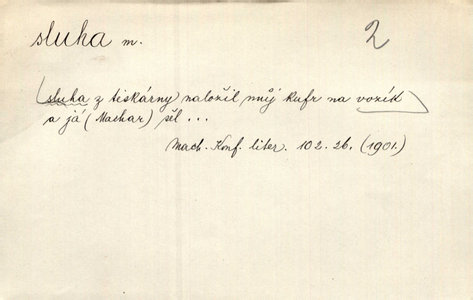 sluha m.
2
(sluha z tiskárny) naložil můj kufr na vozík
a já (Machar) šel ...
Mach. Konf. liter. 102.26. (1901.)